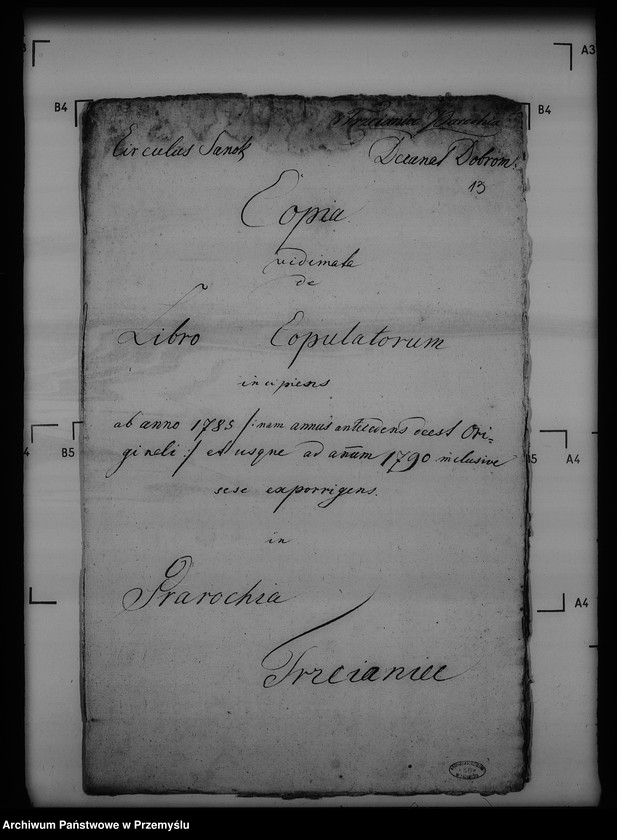 Trzcianiec Parochia
Circulus Sanok Decanat Dobrom.
13
Copia
vidimata
de
Libro Copulatorum
incipiens
ab anno 1785 /: nam annus antecedens deest Ori=
gineli :/ et usque ad anūm 1790 inclusive
sese exporrigens.
in
Prarochia
Trzcianiec
B4
B4
A3
B5
A4
A4
Archiwum Państwowe w Przemyślu